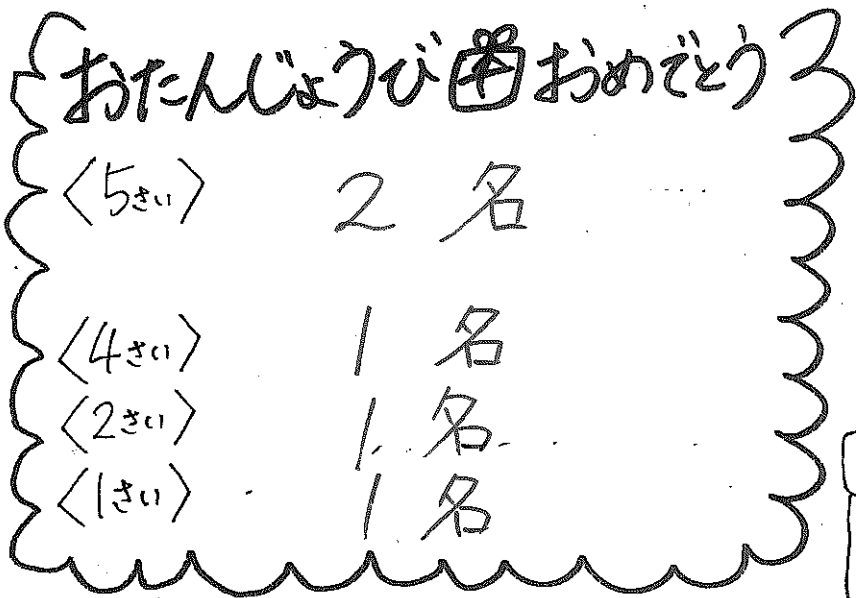 おたんじょうび おめでとう
〈5さい〉 2名
〈4さい〉 1名
〈2さい〉 1名
〈1さい〉 1名